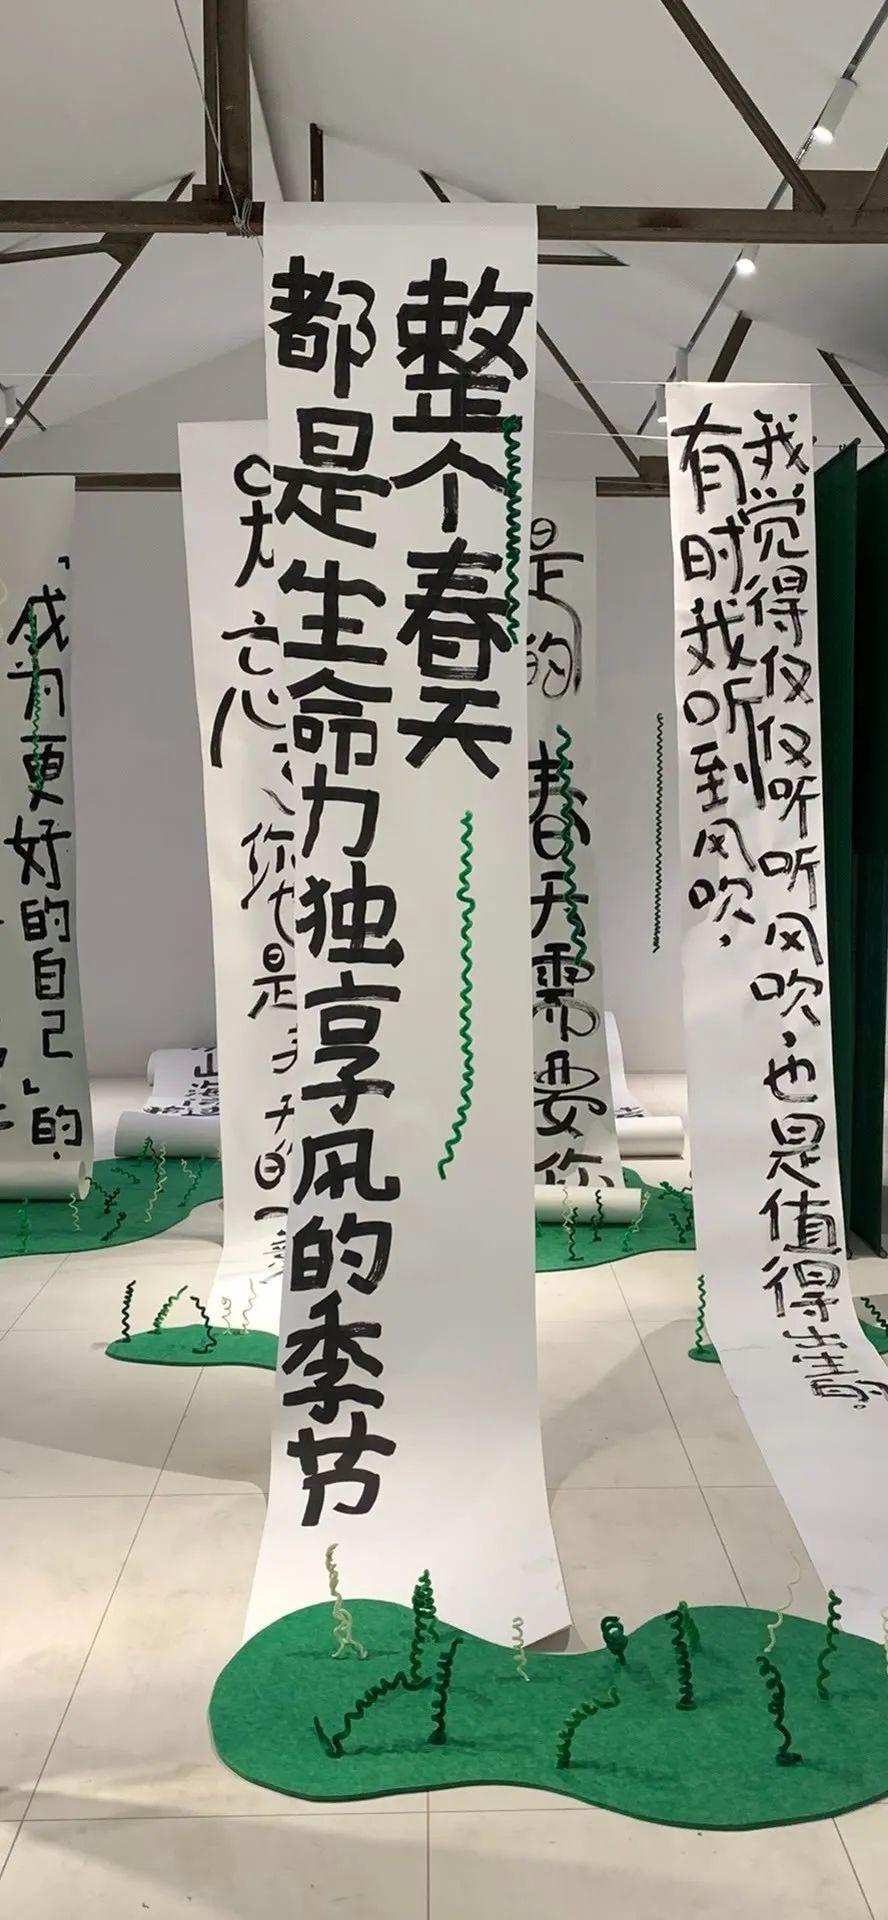 整个春天
都是生命力独享风的季节
有时我听到风吹，
我觉得仅仅听听风吹，也是值得出生的。
是的
春天需要你
「成为更好的自己」的
忘
你也是
山海